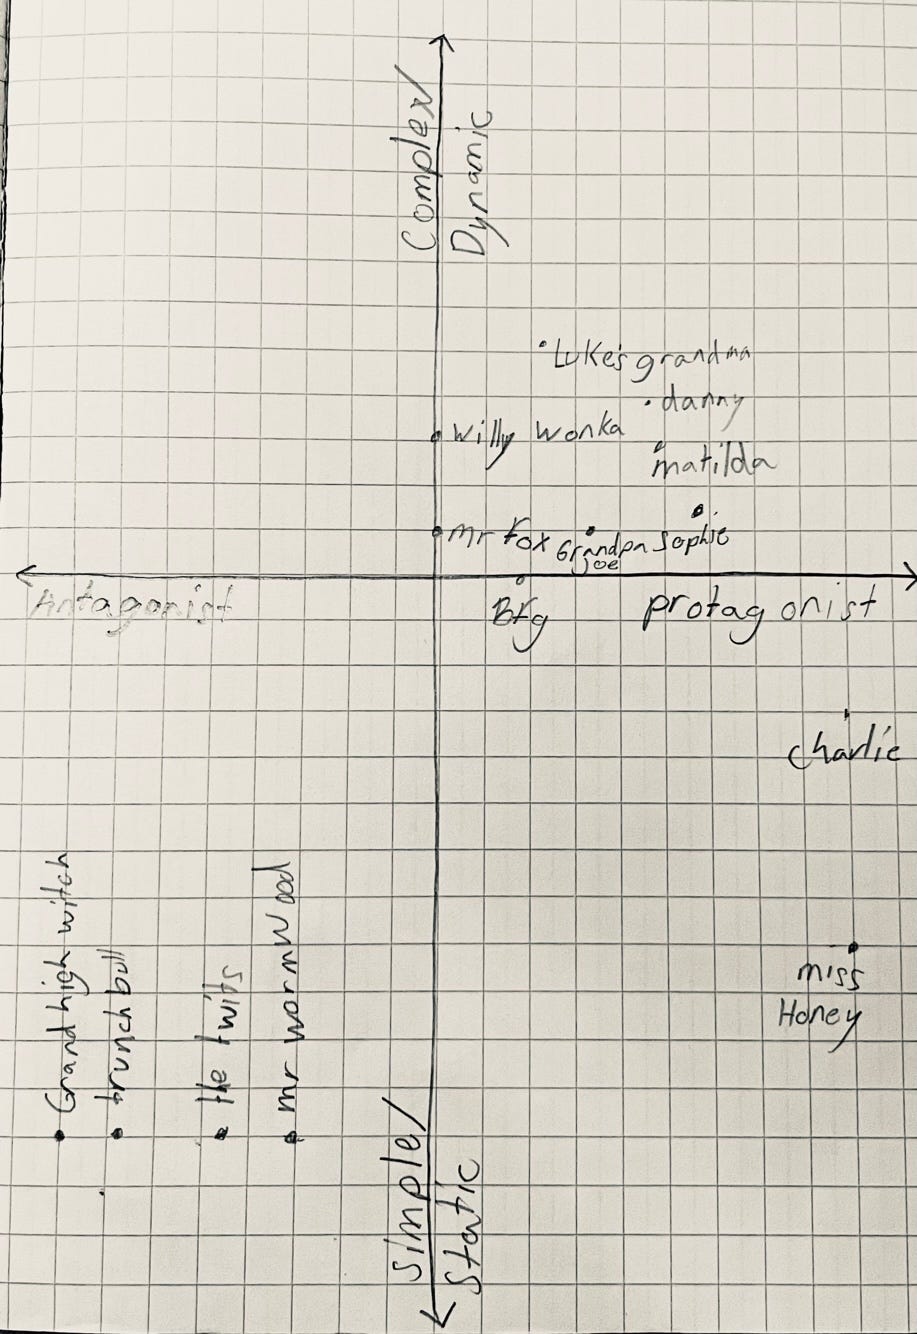 Complex/
Dynamic
Luke's grandma
danny
Willy Wonka
matilda
mr Fox
Grandpa
joe
Sophie
Antagonist
BFg
protagonist
charlie
Grand high witch
trunchbull
the twits
mr wormwood
miss
Honey
Simple/
Static